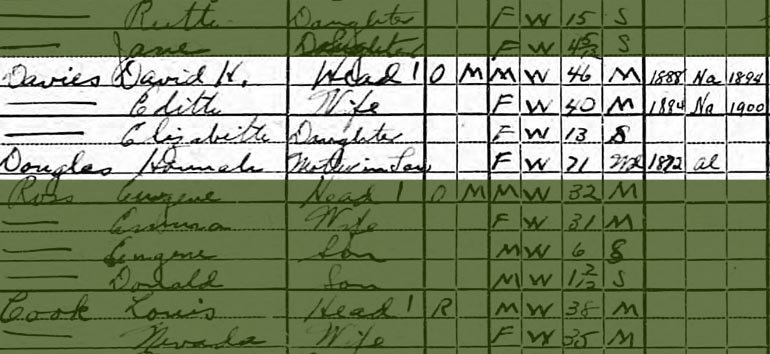 Ruth Daughter F W 15 S
Jane Daughter F W 4 5/12 S
Davies David H. Head 1 O M M W 46 M 1888 Na 1894
Edith Wife F W 40 M 1884 Na 1900
Elizabeth Daughter F W 13 S
Douglas Hannah Mother in Law F W 71 Wd 1872 al
Ross Eugene Head 1 O M M W 32 M
Emma Wife F W 31 M
Eugene Son M W 6 S
Donald Son M W 1 2/12 S
Cook Louis Head 1 R M W 38 M
Nevada Wife F W 35 M